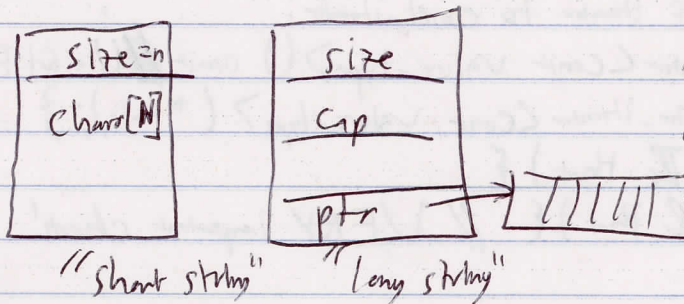 size=n
char[N]
"short string"
size
cap
ptr
"long string"